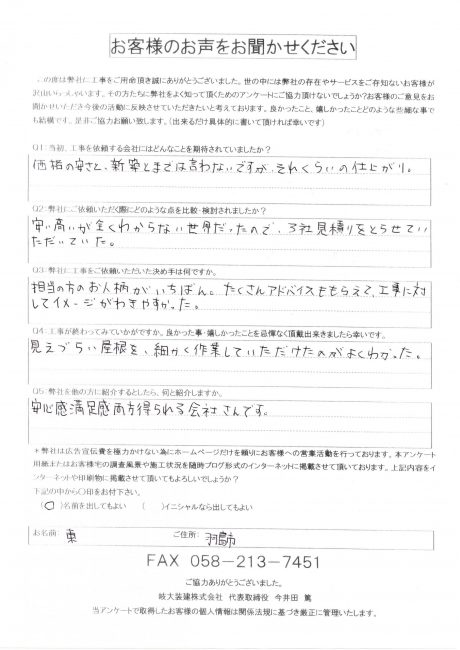 お客様のお声をお聞かせください
この度は弊社に工事をご用命頂き誠にありがとうございました。世の中には弊社の存在やサービスをご存知ないお客様が
沢山いらっしゃいます。その方たちに弊社をよく知って頂くためのアンケートにご協力頂けないでしょうか?お客様のご意見をお
聞かせいただき今後の活動に反映させていただきたいと考えております。良かったこと、嬉しかったことどのような些細な事で
も結構です。是非ご協力お願い致します。(出来るだけ具体的に書いて頂ければ幸いです)
Q1:当初、工事を依頼する会社にはどんなことを期待されていましたか?
価格の安さと、新築とまでは言わないですが、それくらいの仕上がり。
Q2:弊社にご依頼いただく際にどのような点を比較・検討されましたか?
安い高いが全くわからない世界だったので、3社見積りをとらせてい
ただいていた。
Q3:弊社に工事をご依頼いただいた決め手は何ですか。
担当の方のお人柄がいちばん。たくさんアドバイスももらえて、工事に対
してイメージがわきやすかった。
Q4:工事が終わってみていかがですか。良かった事・嬉しかったことを忌憚なく頂戴出来ましたら幸いです。
見えづらい屋根を、細かく作業していただけたのがよくわかった。
Q5:弊社を他の方に紹介するとしたら、何と紹介しますか。
安心感満足感両方得られる会社さんです。
*弊社は広告宣伝費を極力かけない為にホームページだけを頼りにお客様への営業活動を行っております。本アンケート
用紙またはお客様宅の調査風景や施工状況を随時ブログ形式のインターネットに掲載させて頂いております。上記内容をイ
ンターネットや印刷物に掲載させて頂いてもよろしいでしょうか?
下記の中から○印をお付下さい。
(○)名前を出してもよい ( )イニシャルなら出してもよい
お名前: 東 ご住所: 羽島市
FAX 058-213-7451
ご協力ありがとうございました。
岐大装建株式会社 代表取締役 今井田 篤
当アンケートで取得したお客様の個人情報は関係法規に基づき厳正に管理いたします。